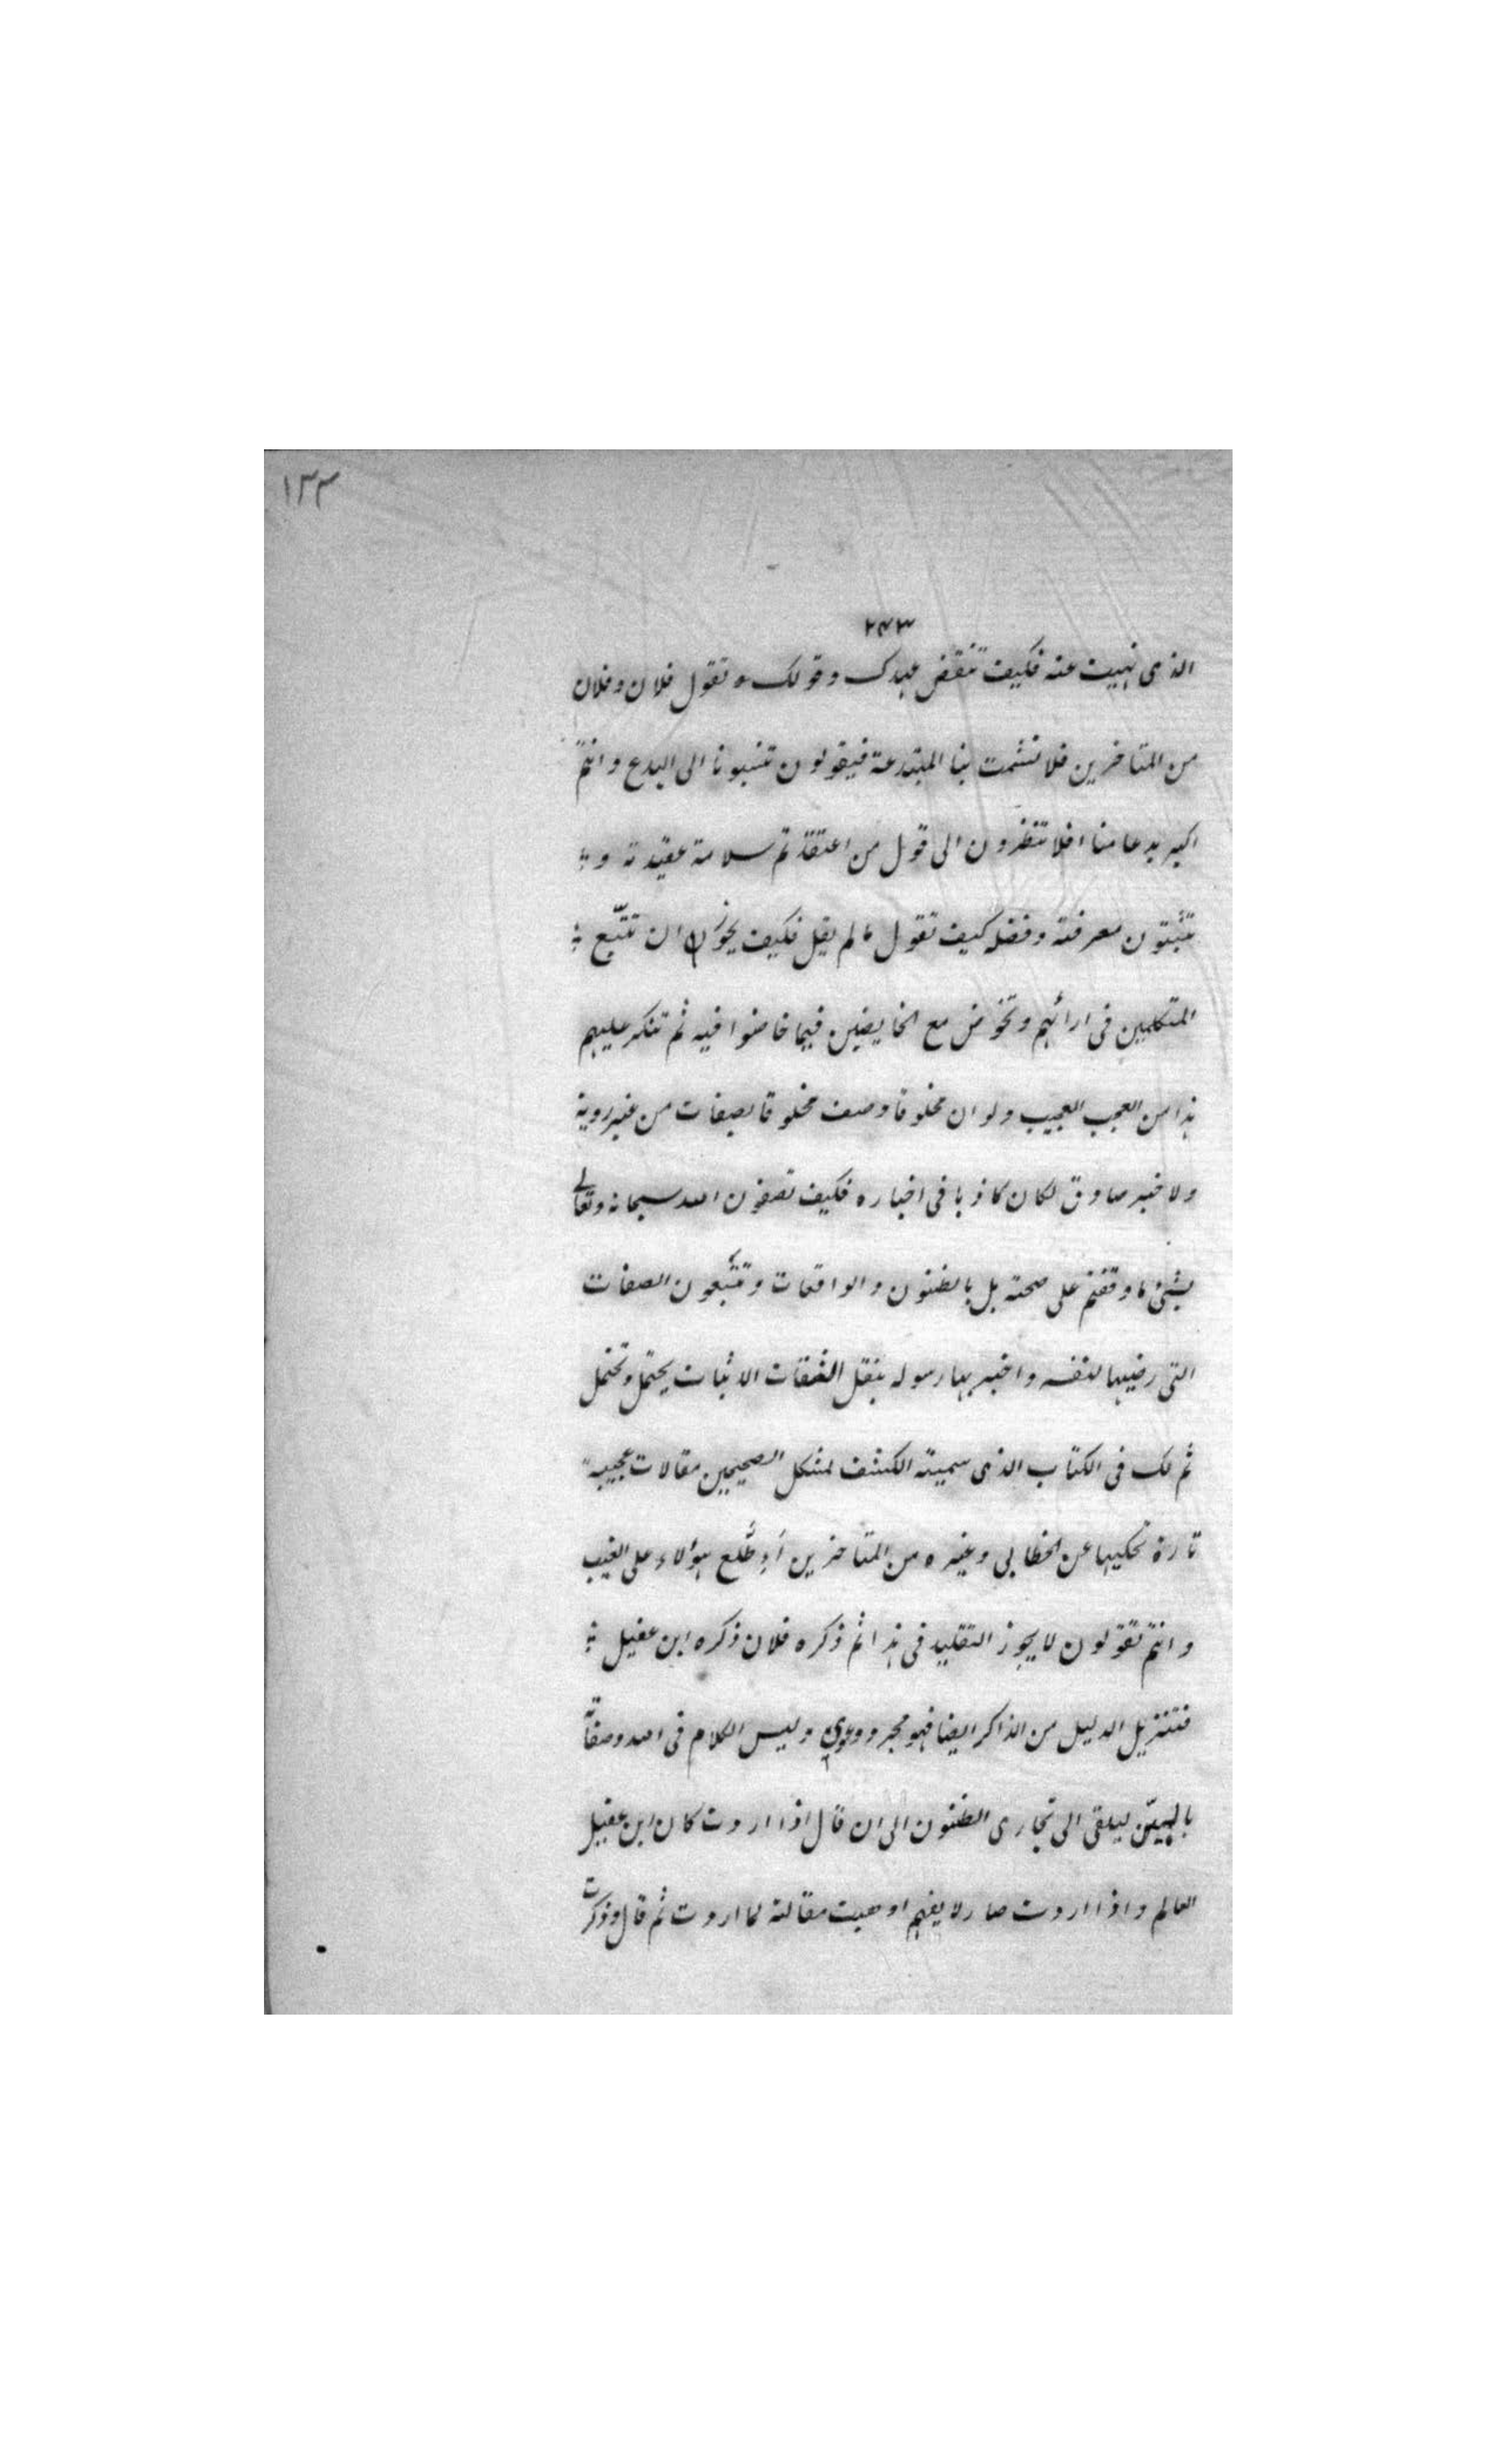 ١٣٣
٢٤٣
الذى نهيت عنه فكيف تنقض عهدك وقولك وتقول فلان وفلان
من المتاخرين فلا تشمت بنا المبتدعة فيقولون تنسبونا الى البدع وانتم
اكبر بدعا منا افلا تنظرون الى قول من اعتقدتم سلامة عقيدته و
تثبتون معرفته وفضله كيف تقول ما لم يقل فكيف يجوز ان تتبع
المتكلمين فى ارائهم وتخوض مع الخايضين فيما خاضوا فيه ثم تنكر عليهم
هذا من العجب العجيب ولو ان مخلوقا وصف مخلوقا بصفات من غير روية
ولا خبر صادق لكان كاذبا فى اخباره فكيف تصفون الله سبحانه وتعالى
بشئ ما وقفتم على صحته بل بالظنون والواقعات وتتبعون الصفات
التى رضيها لنفسه واخبر بها رسوله بنقل الثقات الاثبات يحتمل وتحتمل
ثم لك فى الكتاب الذى سميته الكشف لمشكل الصحيحين مقالات عجيبة
تارة تحكيها عن الخطابي وغيره من المتاخرين أَاِطَّلع هؤلاء على الغيب
وانتم تقولون لا يجوز التقليد فى هذا ثم ذكره فلان ذكره ابن عقيل
فتنزيل الدليل من الذاكر ايضا فهو مجرد دعوى وليس الكلام فى الله وصفاته
بالهيّن ليلقى الى مجارى الظنون الى ان قال اذا اردت كان ابن عقيل
العالم واذا اردت صار لا يفهم اوهيت مقالته لما اردت ثم قال وذكرت